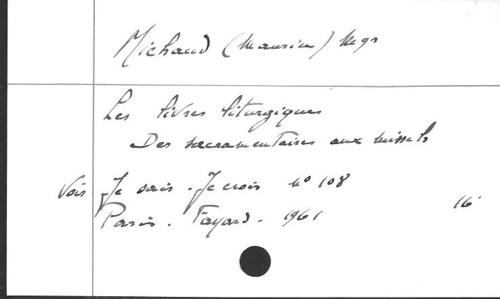 Michaud (Maurice) Mgr
Les livres liturgiques
Des sacramentaires aux missels
Voir Je sais. Je crois n° 108
Paris. Fayard. 1961 16